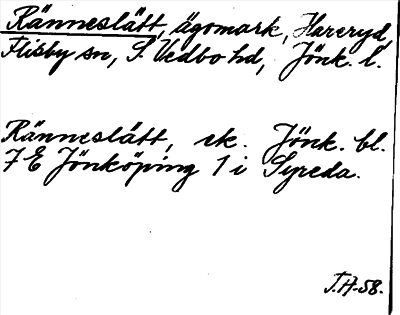 Ränneslätt, ägomark, Hareryd,
Flisby sn, S. Vedbo hd, Jönk. l.
Ränneslätt, ek. Jönk. bl.
7 E Jönköping 1 i Syreda.
T.H-58.